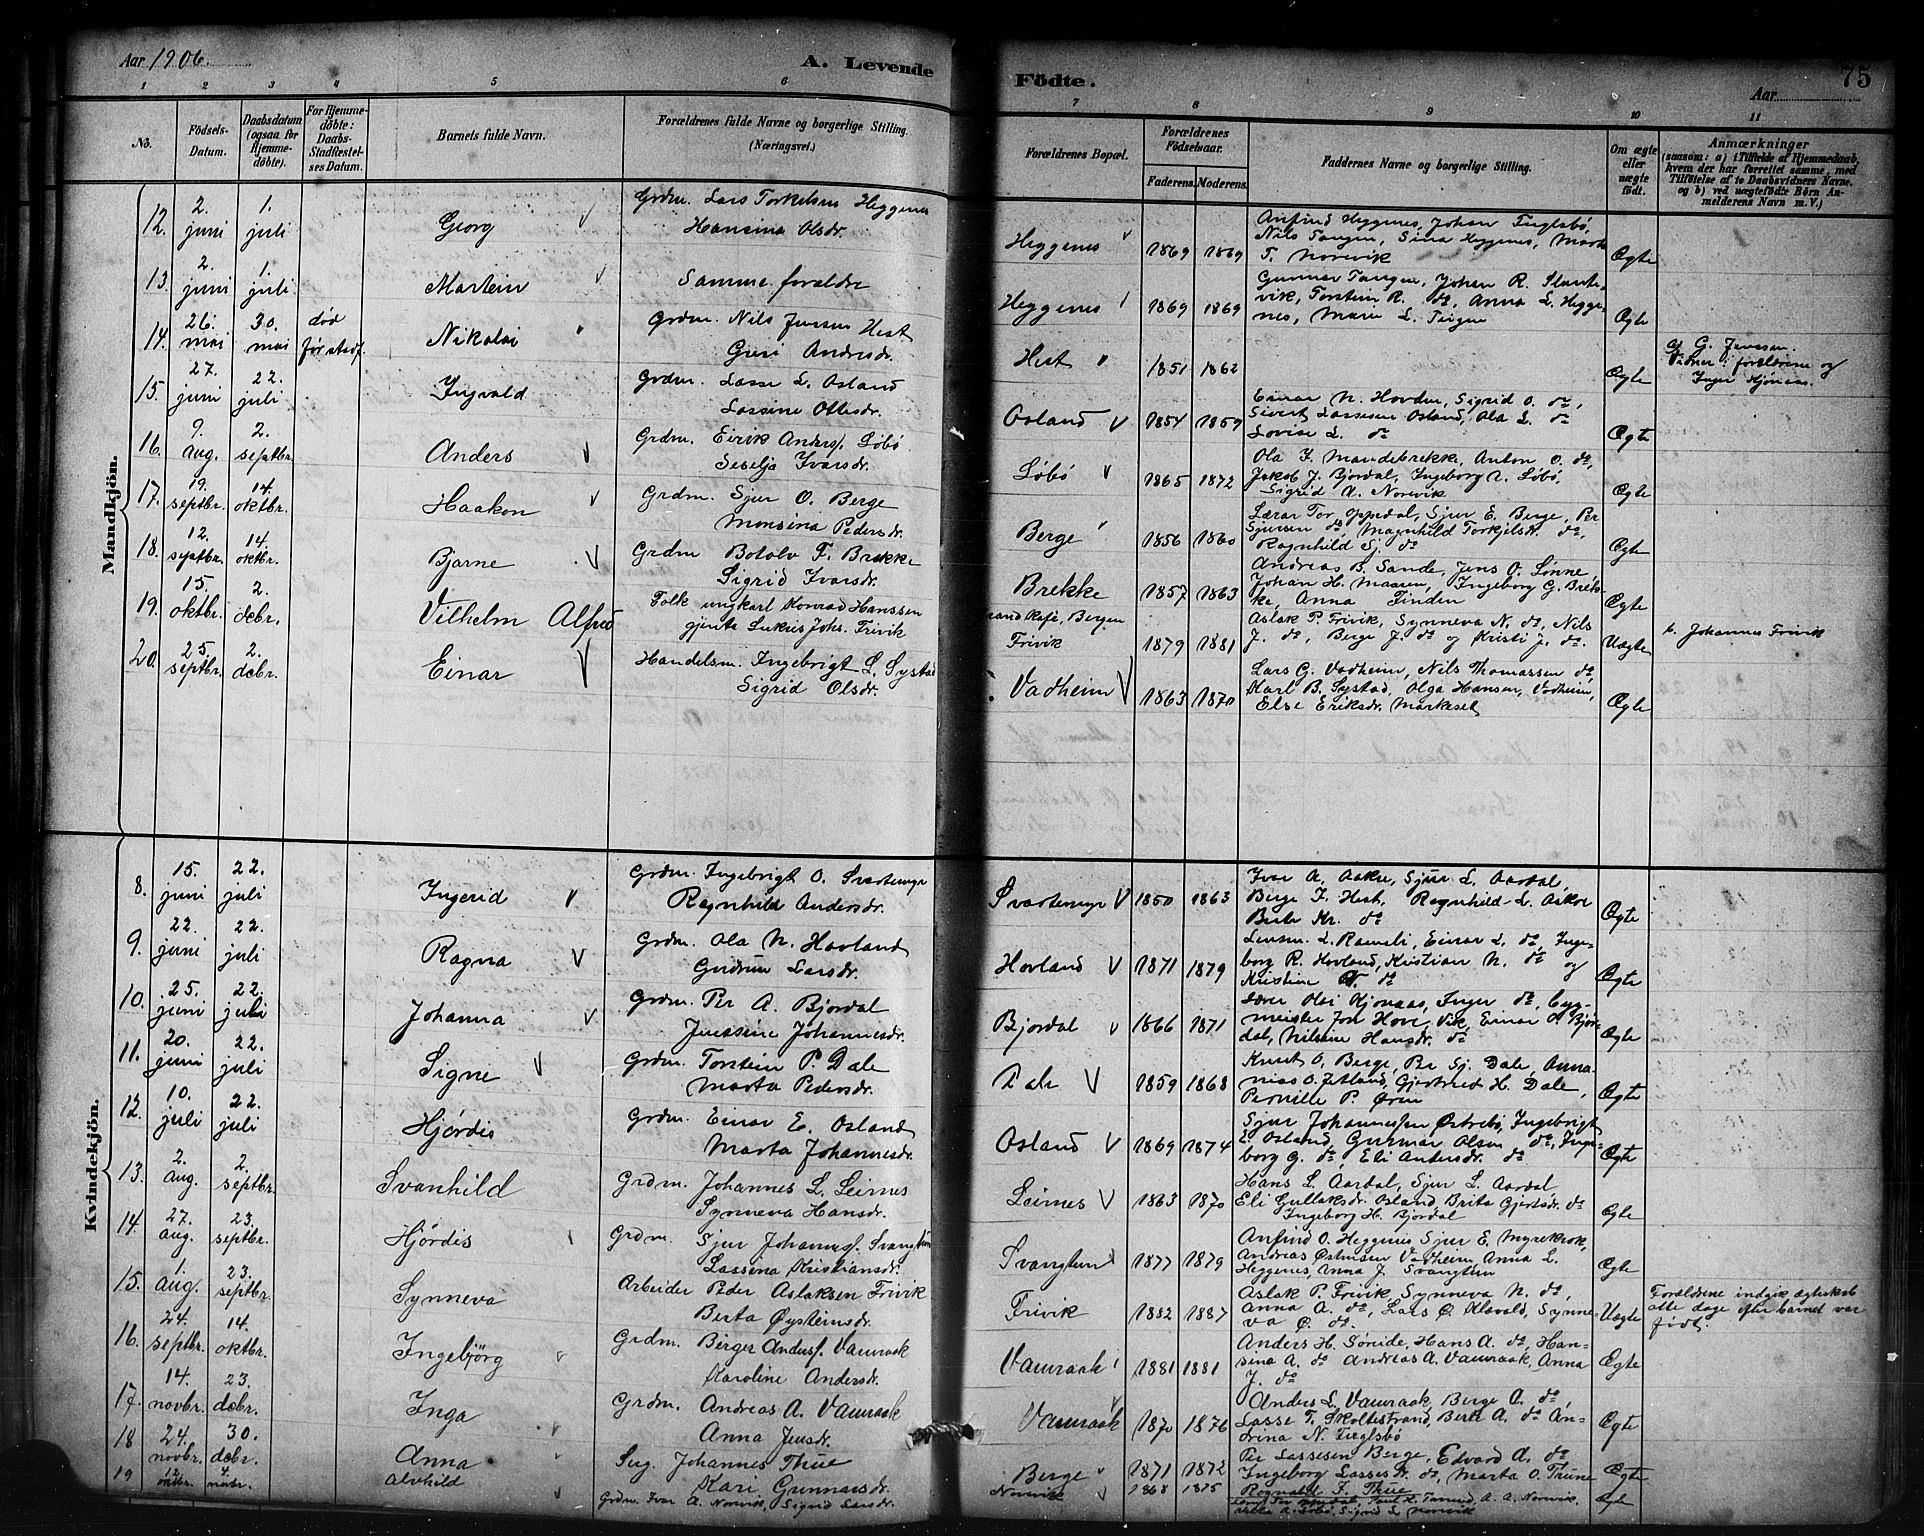 Aar 1906.
A. Levende
Födte.
75
Aar
1 2 3 4 5 6 7 8 9 10 11
No.
Födsels-Datum.
Daabsdatum (ogsaa for Hjemme-döbte).
For Hjemme-döbte: Daabs-Stadfæstel-ses Datum.
Barnets fulde Navn.
Forældrenes fulde Navne og borgerlige Stilling.
(Næringsvei.)
Forældrenes Bopæl.
Forældrenes Födselsaar.
Faderens. Moderens.
Faddernes Navne og borgerlige Stilling.
Om ægte eller uægte födt.
Anmærkninger
(saasom: a) i Tilfælde af Hjemmedaab, hvem der har forrettet samme, med Tilföielse af to Daabsvidners Navne. og b) ved uægtefödte Börn An-melderens Navn m. V.)
Mandkjön.
12. 2. juni 1. juli Georg Grdm. Lars Torkelsen Heggenes
Hansina Olsdr. Heggenes 1869 1869 Anfind Heggenes, Johan Fuglsbø,
Nils Tangen, Sina Heggenes, Marta
T. Norevik Ægte
13. 2. juni 1. juli Martein Samme foræld​re Heggenes 1869 1869 Gunnar Tangen, Johan R.
vik, Torstein R. do, Anna L. Hegge-
nes, Marie L. Teigen Ægte
14. 26. mai 30. mai død før stadf. Nikolai Grdm. Nils Jenssen Hest
Guri Andersdr. Hest 1851 1862 Ægte af G. Jenssen.
Vidner: forældrene og
Inger Kjönaas.
15. 27. juni 22. juli Ingvald Grdm. Lasse L. Osland
Lassine Ottesdr. Osland 1854 1859 Einar N. Hovden, Sigrid O. do,
Sivert Lassesen Osland, Ola L. do
Lovise L. do Ægte
16. 9. aug. 2. septbr. Anders Grdm. Eirik Anders.Løbø
Seselja Ivarsdr. Løbø 1865 1872 Ola I. Mandebrekke, Anton O. do,
Jakob J. Bjordal, Ingeborg A. Løbø,
Sigrid A. Norevik Ægte
17. 19. septbr. 14. oktbr. Haakon Grdm. Sjur O. Berge
Monsina Pedersdr. Berge 1856 1860 Lærar Tor Oppedal, Sjur E. Berge, Per
Sjursen do, Magnhild Torkjelsdr. do,
Ragnhild Sj. do Ægte
18. 12. septbr. 14. oktbr. Bjarne Grdm Botolv F. Brekke
Sigrid Ivarsdr. Brekke 1857 1863 Andreas B. Sande, Jens O. Lønne
Johan H. Maaren, Ingeborg G. Brek-
ke, Anna Finden Ægte
19. 15. oktbr. 2. debr. Vilhelm Alfred Folk ungkarl Konrad Hanssen
gjente Lukris Johs. Frivik Bergen
Frivik 1879 1881 Aslak P. Frivik, Synneva N. do, Nils
J. do, Berge J. do og Kristi J. do. Uægte Johannes Frivik
20. 25. septbr. 2. debr. Einar Handelsm. Ingebrigt L. Systad
Sigrid Olsdr. Vadheim 1863 1870 Lars G. Vadheim, Nils Thomassen do,
Karl B. Systad, Olga Hansen, Vadheim,
Else Eriksdr. Markeset Ægte
Kvindekjön.
8. 15. juni 22. juli Ingerid Grdm. Ingebrigt O. Svartemyr
Ragnhild Andersdr. Svartemyr 1850 1863 Ivar A. Aaker, Sjur L. Aardal,
Berge I. Hest, Ragnhild L. Asker
Berte Kr. do Ægte
9. 22. juni 22. juli Ragna Grdm. Ola N. Hovland
Gudrun Larsdr. Hovland 1871 1879 Lensm. L. Ramsli, Einar L. do, Inge-
borg R. Hovland, Kristian N. do og
Kristine N. do Ægte
10. 25. juni 22. juli Johanna Grdm. Per A. Bjordal
Jenssine Johannesdr. Bjordal 1866 1871 Lærer Oli Kjönaas, Inger do, byg-
meister Jon Hove, Vik, Einar O. Bjor-
dal, Nilsine Hansdr. do Ægte
11. 20. juni 22. juli Signe Grdm. Torstein P. Dale
Marta Pedersdr. Dale 1859 1868 Knut O. Berge, Per Sj. Dale, Anna-
nias O. Jetland, Gjertrud H. Dale,
Pernille P. Øren Ægte
12. 10. juli 22. juli Hjørdis Grdm. Einar E. Osland
Marta Johannesdr. Osland 1869 1874 Sjur Johannessen Østrebø, Ingebrigt
E. Osland, Gunnar Olsen do, Inge-
borg G. do, Eli Andersdr. do Ægte
13. 2. aug. 2. septbr. Svanhild Grdm. Johannes L. Leirnes
Synneva Hansdr. Leirnes 1863 1870 Hans L. Aardal, Sjur L. Aardal
Eli Gullaksdr. Osland, Brita Gjertsdr. do
Ingeborg H. Bjordal Ægte
14. 27. aug. 23. septbr. Hjørdis Grdm. Sjur Johannes. Svangtun
Lassena Kristiansdr. Svangtun 1877 1879 Anfind O. Heggenes Sjur E. Myrekrok,
Andreas Østensen Vadheim, Anna L.
Heggenes, Anna J. Svangtun Ægte
15. 1. aug. 23. septbr. Synneva Arbeider Peder Aslaksen Frivik
Berta Øysteinsdr. Frivik 1882 1887 Aslak P. Frivik, Synneva N. do,
Anna A. do, Lars Ø. Klævold, Synne-
va Ø. do. Uægte Forældrene indgik ægteskab
otte dage efter barnet var
født.
16. 24. septbr. 14. oktbr. Ingebjørg Grdm. Birger Anders. Vamraak
Karoline Andersdr. Vamraak 1881 1881 Anders H. Søreide, Hans A. do, Han-
sina A. do Andreas A. Vamraak, Anna
J. do Ægte
17. 14. novbr. 23. debr. Inga Grdm. Andreas A. Vamraak
Anna Jensdr. Vamraak 1870 1876 Anders L. Vamraak, Berge A. do,
Lasse T. Skoltestrand, Berte A. do An-
drina N. Fuglsbø Ægte
18 24. novbr. 30. debr. Anna Sug. Johannes Thue
Kari Gunnarsdr. Berge 1871 1872 Per Lassesen Berge, Edvard A. do
Ingeborg Lassesdr. do, Marta O. Trune
Ragnald I. Thue Ægte
19 12. 4. novbr. Alvhild Grdm. Ivar A. Norvik, Sigrid Larsdr. Norevik 1868 1875 A. A. Norvik,
A. Løbø, Sigrid L. Norvik Ægte